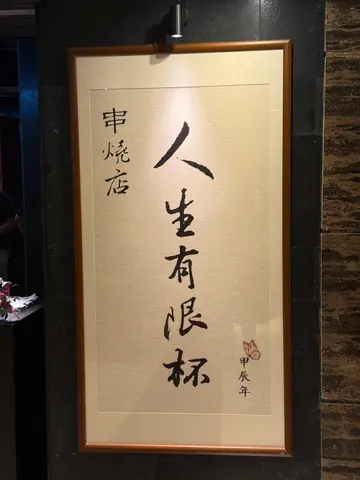 串燒店
人生有限杯
甲辰年